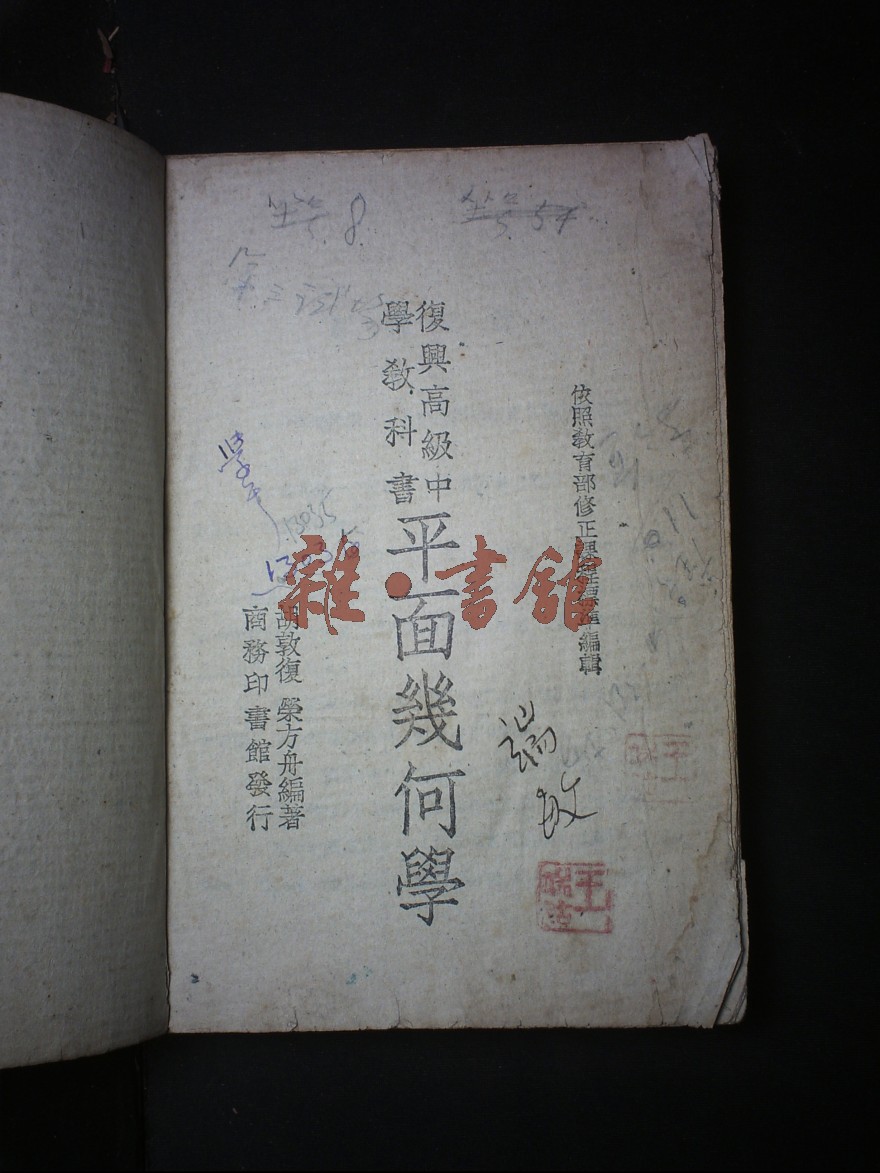 依照教育部修正課程標準編輯
復興高級中
學教科書
平面幾何學
胡敦復 榮方舟編著
商務印書館發行
雜·書館
端敏
8
54
13035